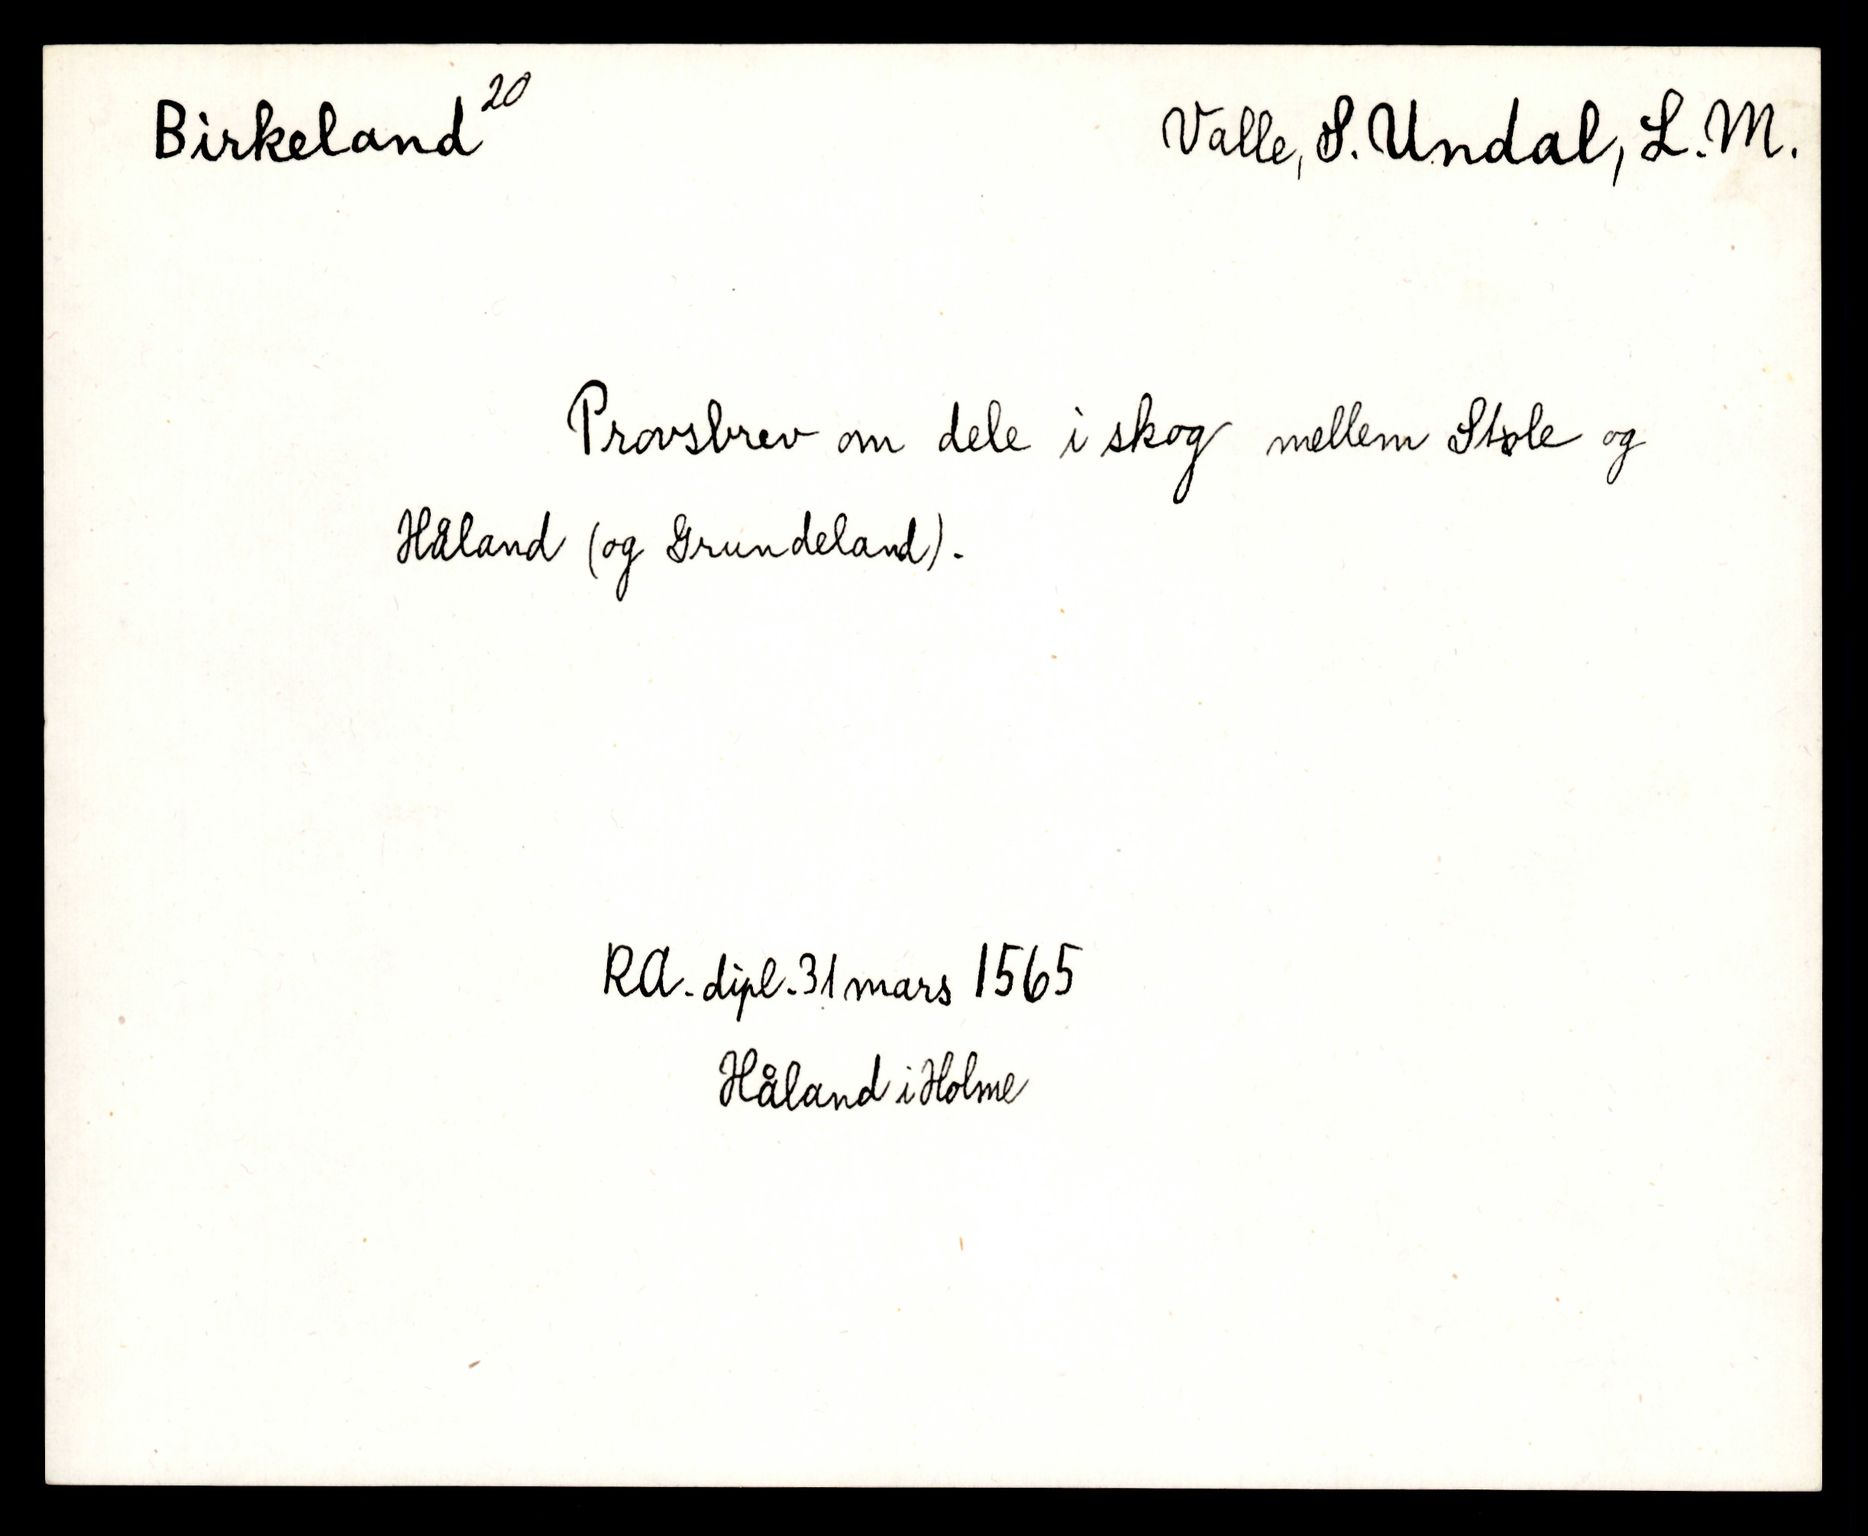 Birkeland 20
Valle, S. Undal, L. M.
Provsbrev om dele i skog mellem Støle og
Håland (og Grundeland).
RA. dipl. 31 mars 1565
Håland i Holme